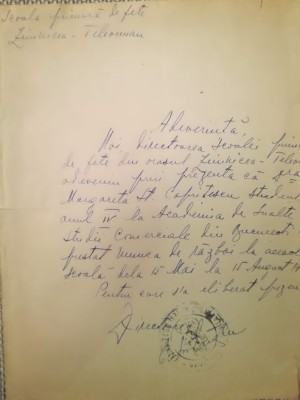 Scoala primară de fete
Zimnicea - Teleorman
Adeverință,
Noi, Directoarea Scoalei prim
de fete din orasul Zimnicea - Teleo
adeverim prin prezenta că
Margareta St. studen
anul IV la Academia de Inalte
Studii Comerciale din Bucuresti
prestat munca de războiu la aceas
scoală dela 15 Mai la 15 August
Pentru care s'a eliberat prezen
Directoare